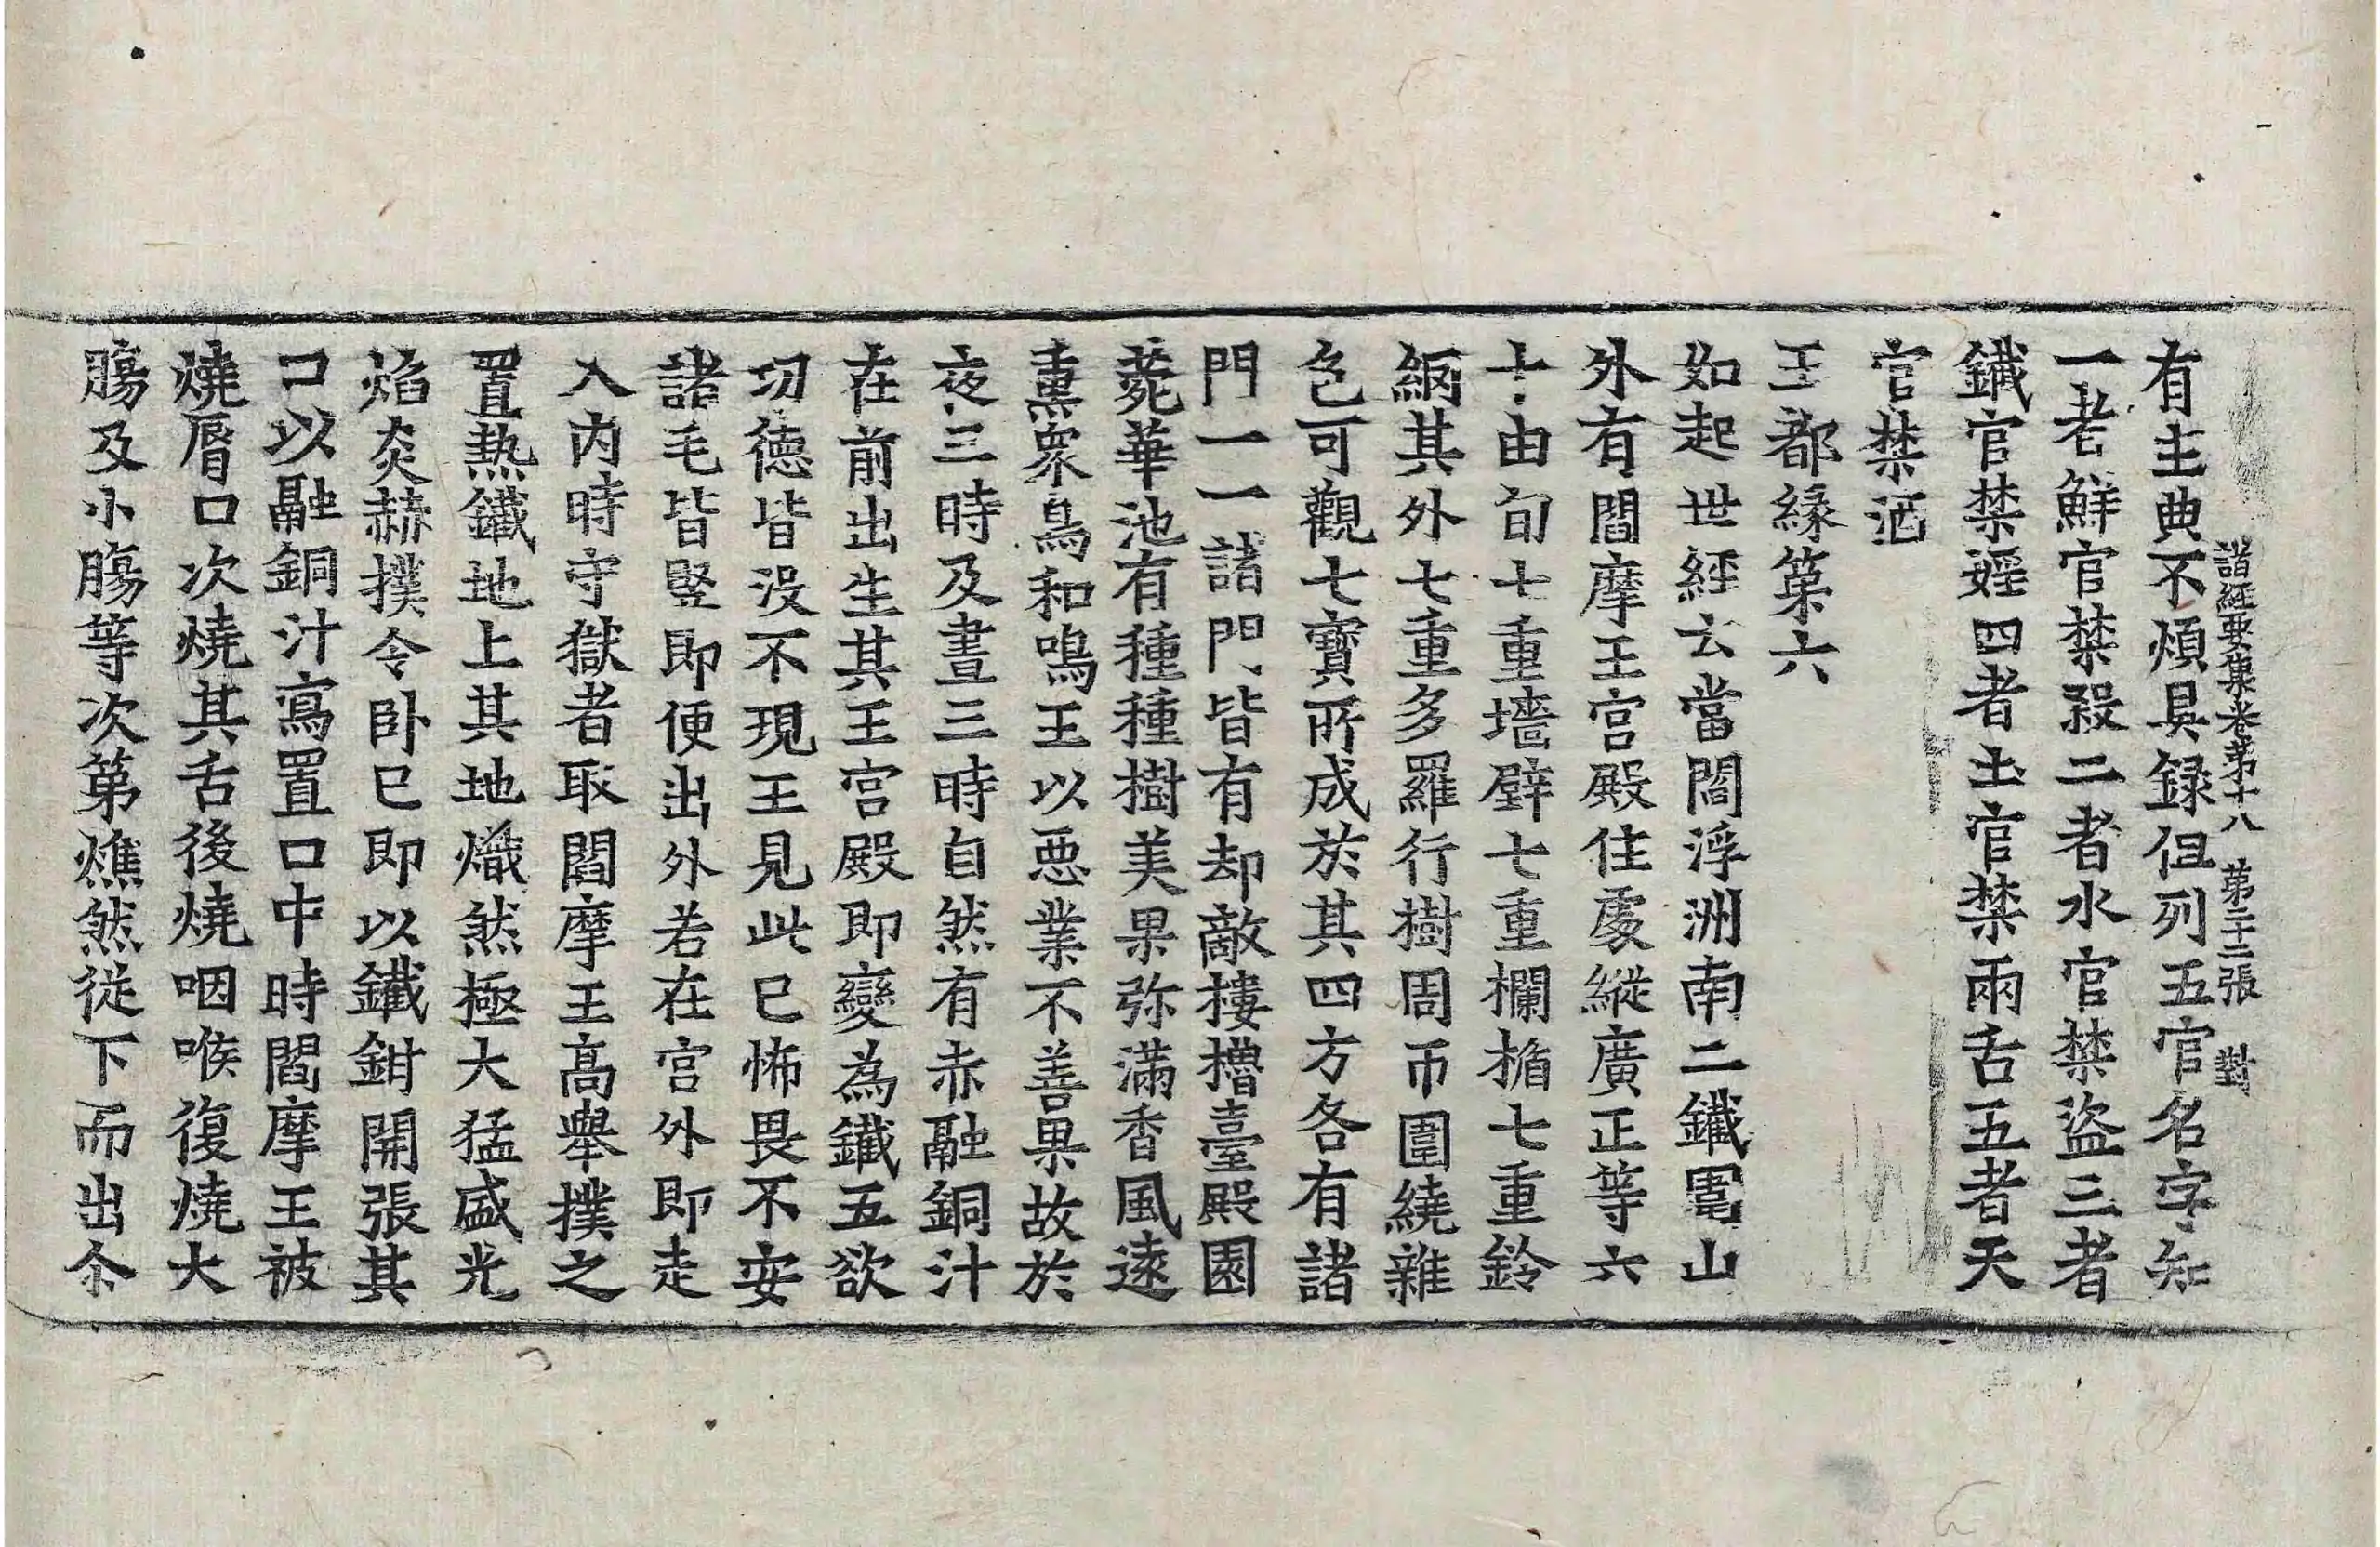 諸經要集卷第十八　第二十三張　對
有主典不煩具録但列五官名字知
一者鮮官禁殺二者水官禁盜三者
鐵官禁婬四者土官禁兩舌五者天
官禁酒
王都縁第六
如起世經云當閻浮洲南二鐵圍山
外有閻摩王宮殿住處縱廣正等六
十由旬七重墻壁七重欄楯七重鈴
網其外七重多羅行樹周帀圍繞雜
色可觀七寶所成於其四方各有諸
門一一諸門皆有却敵樓櫓臺殿園
菀華池有種種樹美果弥滿香風遠
熏衆鳥和鳴王以惡業不善果故於
夜三時及晝三時自然有赤融銅汁
在前出生其王宮殿即變為鐵五欲
㓛德皆没不現王見此已怖畏不安
諸毛皆竪即便出外若在宮外即走
入內時守獄者取閻摩王高舉撲之
置熱鐵地上其地熾然極大猛盛光
焰炎赫撲令卧已即以鐵鉗開張其
口以融銅汁寫置口中時閻摩王被
燒脣口次燒其舌後燒咽喉復燒大
膓及小膓等次第燋然從下而出尒